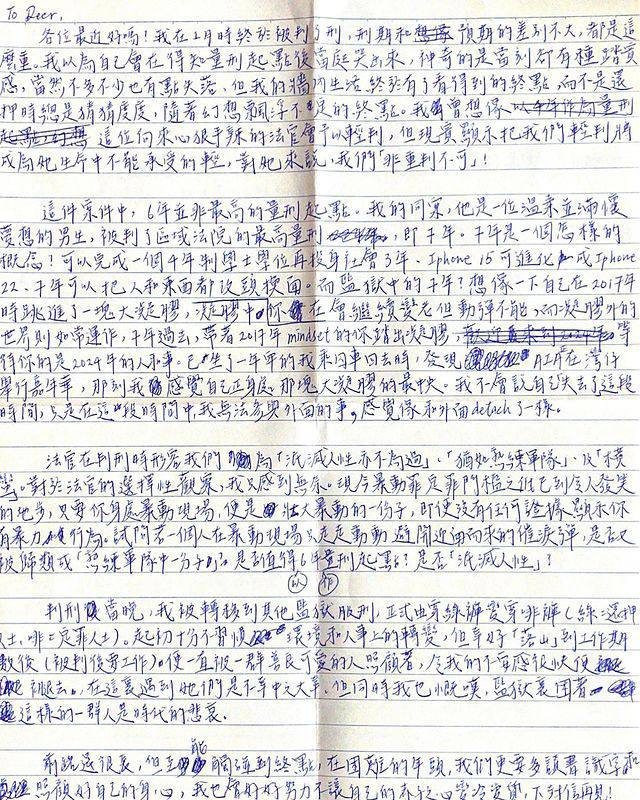 To Deer,
各位最近好嗎！我在2月時終於被判了刑，刑期和預期的差別不大，都是這
麼重。我以為自己會在得知量刑起點後當庭哭出來，神奇的是當刻卻有種踏實
感，當然不多不少也有點失落，但我的牆內生活終於有了看得到的終點，而不是還
押時總是猜猜度度，隨著幻想飄浮不定的終點。我曾想像
這位向來心狠手辣的法官會予以輕判，但現實顯示把我們輕判將
成為她生命中不能承受的輕，對她來說，我們「非重判不可」！
這件案件中，6年並非最高的量刑起點。我的同案，他是一位溫柔並滿懷
夢想的男生，被判了區域法院的最高量刑，即7年。7年是一個怎樣的
概念？可以完成一個4年制學士學位再投身社會3年、Iphone 15可進化成Iphone
22、7年可以把人和東西都改頭換面。而監獄中的7年？想像一下自己在2017年
時跳進了一塊大凝膠，凝膠中你在會繼續變老但動彈不能，而凝膠外的
世界則如常運作，7年過去，帶著2017年 mindset的你踏出凝膠，等
待你的是2024年的人和事。已坐了一年半的我乘囚車回去時，發現A2A在灣仔
舉行嘉年華，那刻我感覺自己正身處那塊大凝膠的最中央。我不會說自己失去了這段
時間，只是在這段時間中，我無法參與外面的事，感覺像和外面detach了一樣。
法官在判刑時形容我們為「泯滅人性亦不為過」、「猶如熟練軍隊」及「橫
蠻」。對於法官的選擇性觀察，我只感到無奈。現今暴動罪定罪門檻之低已到令人發笑
的地步，只要你身處暴動現場，便是壯大暴動的一份子，即使沒有任何證據顯示你
有暴力行為。試問若一個人在暴動現場只是走動動避開迎面而來的催淚彈，是否又
被歸類成「熟練軍隊中一分子」？是否值得6年量刑起點？是否「泯滅人性」？
判刑當晚，我被轉移到其他監獄服刑，正式由穿綠褲變穿啡褲（綠：還押
人士，啡：定罪人士）。起初十分不習慣環境和人事上的轉變，但幸好「落山」到工作期
數後（被判後要工作）。便一直被一群善良可愛的人照顧著，令我的不安感很快便
褪去。在這裏遇到她們是不幸中之大幸。但同時我也慨嘆，監獄裏困著
這樣的一群人是時代的悲哀。
前路還很長，但至能觸碰到終點，在困難的年頭，我們更要多讀書識字和
照顧好自己的身心，我也會好好努力不讓自己的赤子之心變冷變像，下封信再見！